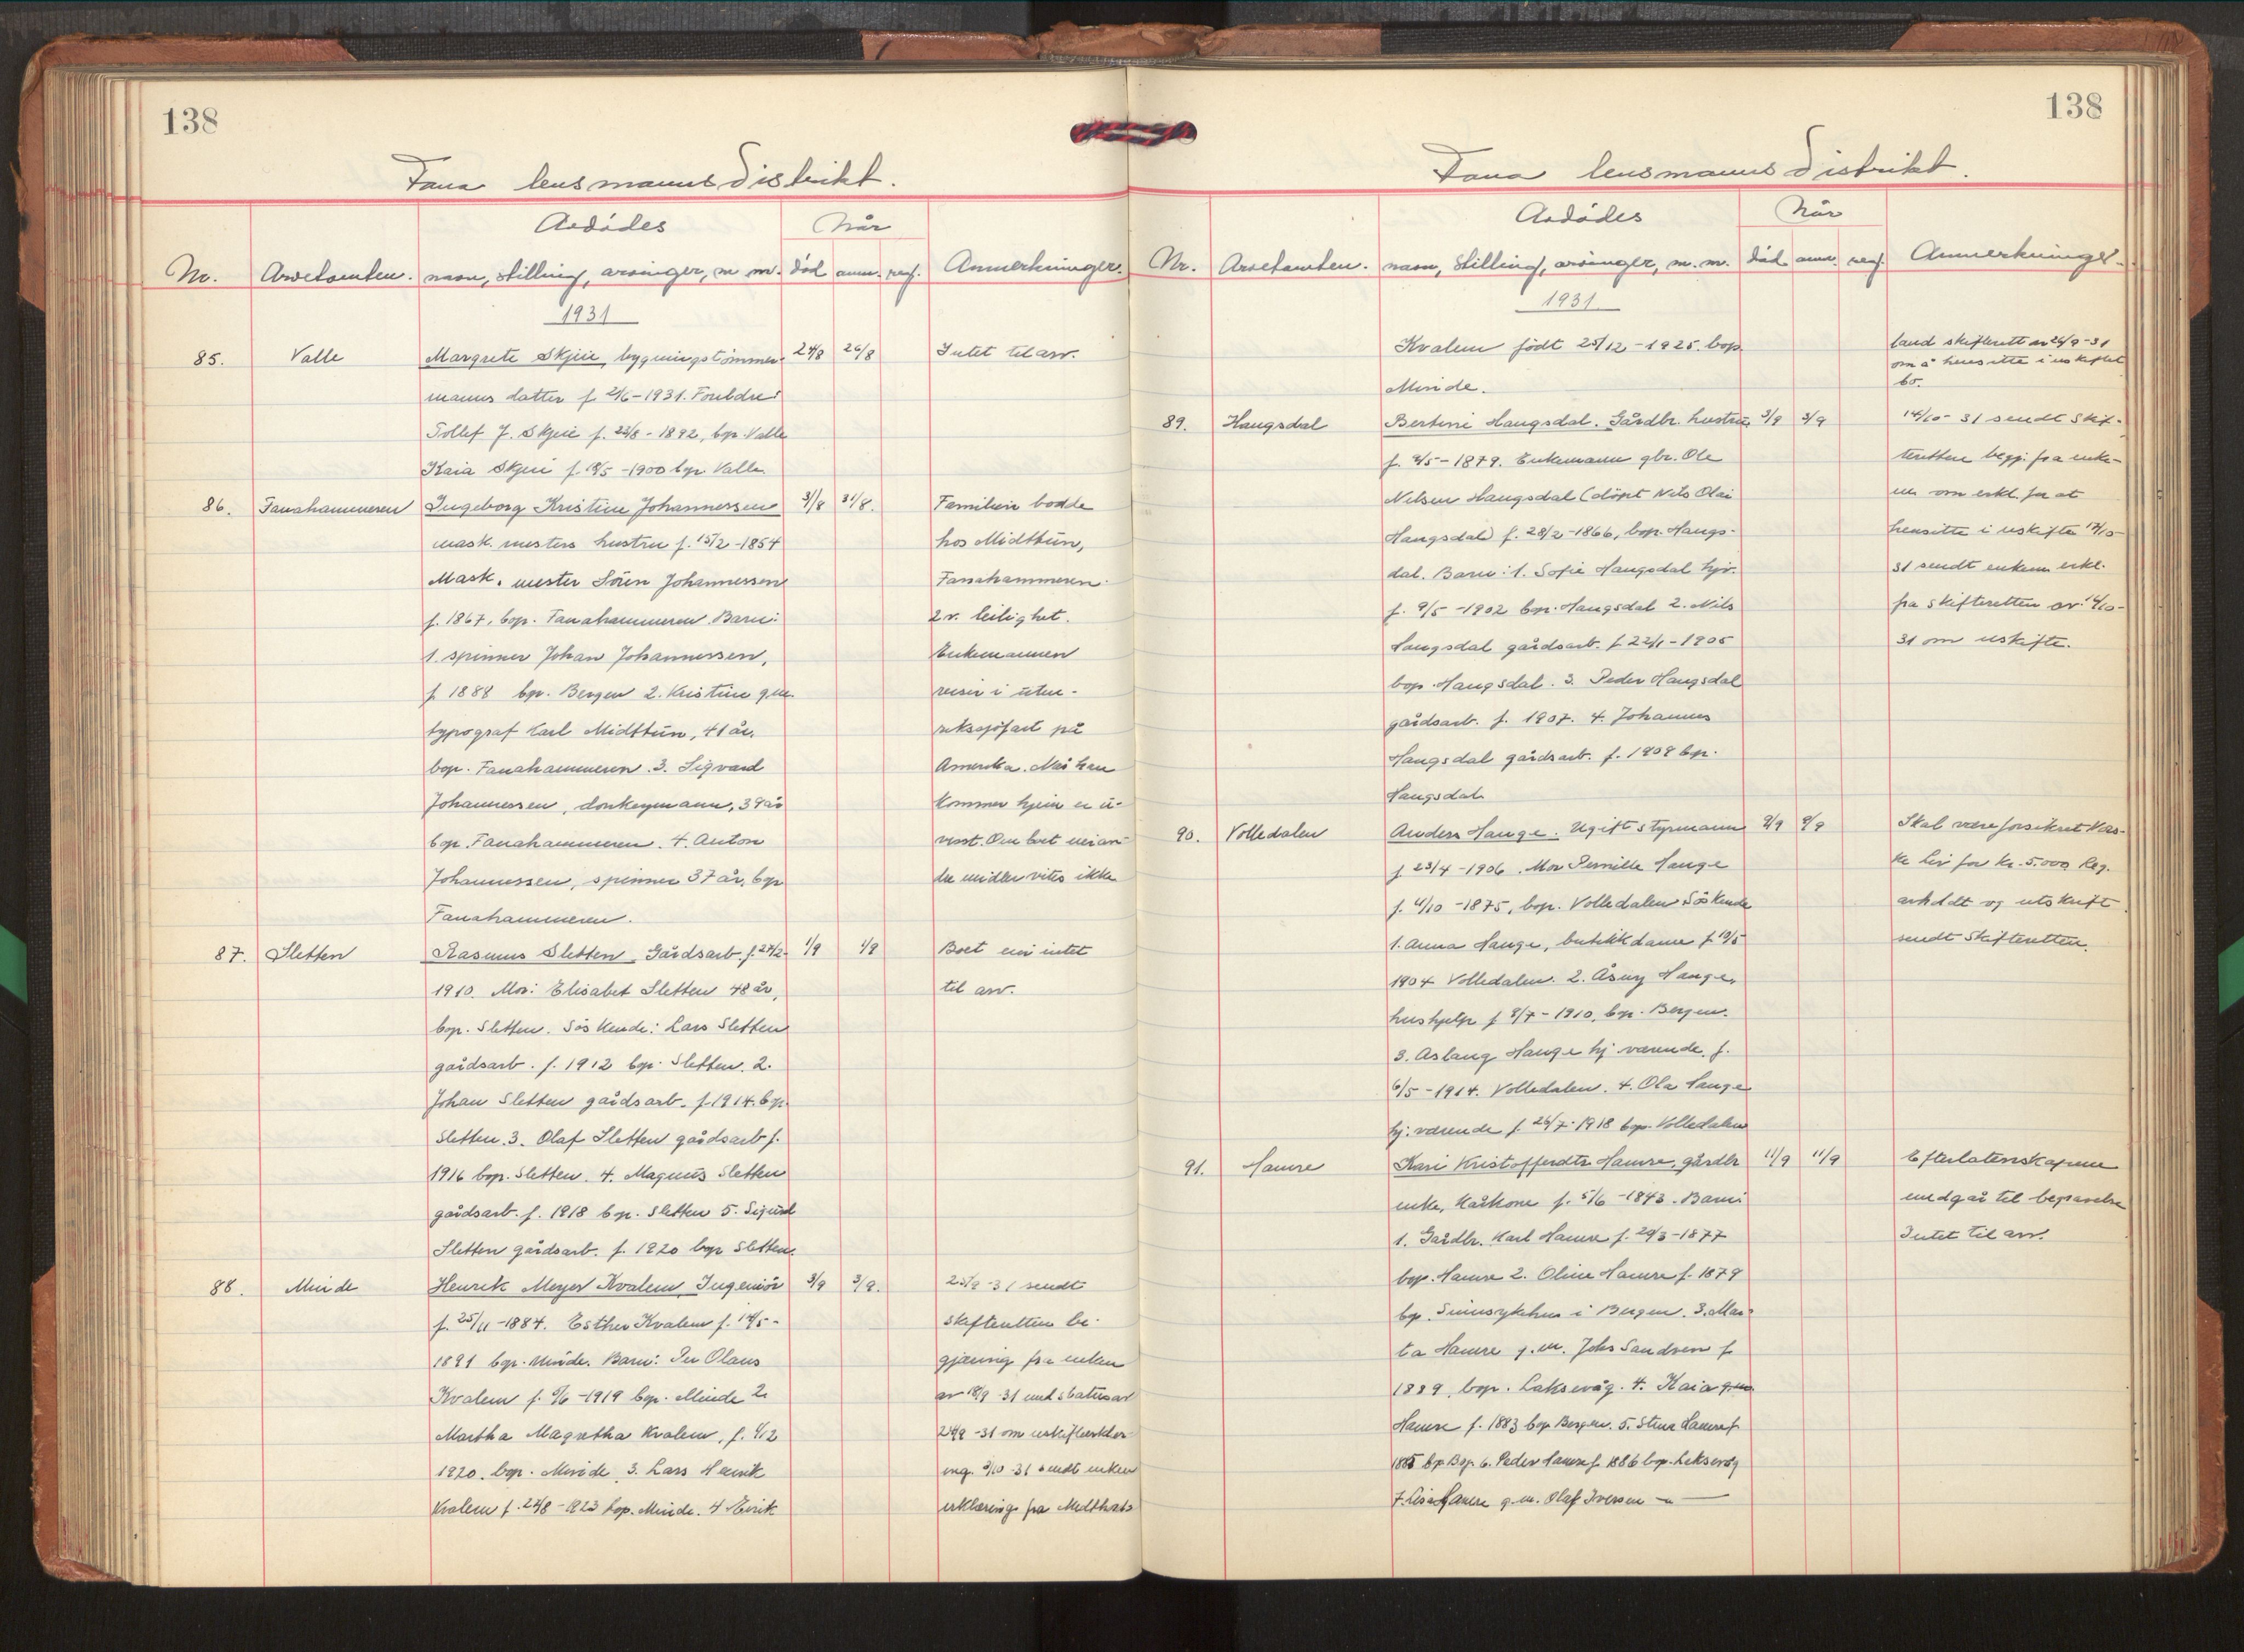 138
Fana lensmannsdistrikt.
Avdødes
Når
Nr. Arvetomten. navn, stilling, arvinger, m m. død anm. reg. Anmerkninger.
1931
85. Valle Margrete Skjeie, bygningstømmer- 24/8 26/8 Intet til arv.
manns datter f. 2/6-1931. Foreldre:
Tollef J. Skjeie f. 23/8-1892, bop. Valle
Kaia Skjeie f. 18/5-1900 bop. Valle
86. Fanahammeren Ingeborg Kristine Johannessen 31/8. Familien bodde
mask. mesters hustru f. 15/2-1854 hos Midttun,
Mask. mester Sören Johannessen Fanahammeren.
f. 1867, bop. Fanahammeren. Barn: 2 v. leilighet.
1. spinner Johan Johannessen, Enkemannen
f. 1888 bop. Bergen 2. Kristine g.m. reiser i uten-
typograf Karl Midttun, 41 år, rikssjöfart på
bop. Fanahammeren. 3. Sigvard Amerika. Når han
Johannessen, donkeymann, 39 år kommer hjem er u-
bop. Fanahammeren. 4. Anton visst. Om boet eier an-
Johannessen, spinner 37 år, bop. dre midler vites ikke
Fanahammeren.
87. Sletten Rasmus Sletten, Gårdsarb. f. 27/2- 1/9 Boet eier intet
1910. Mor: Elisabet Sletten 48 år, til arv.
bop. Sletten. Söskende: Lars Sletten
gårdsarb. f. 1912 bop. Sletten. 2.
Johan Sletten gårdsarb. f. 1914. bop.
Sletten. 3. Olaf Sletten gårdsarb f.
1916 bop. Sletten. 4. Magnus Sletten
gårdsarb. f. 1918 bop. Sletten 5. Sigurd
Sletten gårdsarb. f. 1920 bop Sletten.
88. Minde Henrik Meyer Kvalem, Ingeniör 3/9 3/9. 23/9-31 sendt
f. 25/11-1884. Esther Kvalem f. 14/5- skifteretten be-
1891 bop. Minde. Barn: Per Olaus gjæring fra enken
Kvalem f. 5/6-1919 bop. Minde 2. av 18/9-31 med status av
Martha Magretha Kvalem, f. 4/12 -31 om uskifteerklær-
1920. bop. Minde. 3. Lars Henrik ing. 9/10-31 sendt enken
Kvalem f. 24/8-1923 bop. Minde. 4 Eirik erklæring fra
138
Fana lensmannsdistrikt.
Avdødes
Når
Nr. Arvetomten. navn, stilling, arvinger, m. m. død anm. reg. Anmerkninger.
1931
Kvalem födt 25/12-1925. bop. land skifterett av 26/9-31
Minde. om å hensitte i uskiftet bo.
89. Haugsdal Bertine Haugsdal. Gårdbr. hustru 3/9 3/9 14/10-31 sendt Skif-
f. 8/5-1879. Enkemann gbr. Ole teretten begj. fra enke-
Nilsen Haugsdal (döpt Nils Olai om erkl. for at
Haugsdal) f. 28/2-1866, bop. Haugs- hensitte i uskifte 17/10-
dal. Barn: 1. Sofie Haugsdal hjv. 31 sendt enkem. erkl.
f. 9/5-1902 bop. Haugsdal 2. Nils fra skifteretten av 14/10-
Haugsdal gårdsarb. f. 22/1-1905 31 om uskifte.
bop. Haugsdal. 3. Peder Haugsdal
gårdsarb. f. 1907. 4. Johannes
Haugsdal gårdsarb. f. 1909 bop.
Haugsdal
90. Volledalen Anders Hauge. Ugift styrmann 9/9 9/9 Skal være forsikret
f. 23/4-1906. Mor Pernille Hauge for kr. 5.000 Reg.
f. 4/10-1875, bop. Volledalen. Söskende avholdt og utskrift
1. Anna Hauge, butikkdame f. 10/5 sendt Skifteretten.
1904 Volledalen. 2. Åsny Hauge,
hushjelp f. 8/7-1910, bop. Bergen.
3. Aslaug Hauge hj. værende, f.
6/5-1914. Volledalen. 4. Ola Hauge
hj. værende f. 26/7-1918 bop. Volledalen
91. Hamre Kari Kristoffersdtr. Hamre, gårdbr. 11/9 11/9 Efterlatenskapene
enke, kårkone f. 5/6-1843. Barn: medgår til begravelse
1. Gardbr. Karl Hamre f. 29/3-1877 Intet til arv.
bop. Hamre 2. Oline Hamre f. 1879
bop. Sinnsykehus i Bergen. 3. Mar-
ta Hamre g. m. Johs Sandven f.
1889, bop. Laksevåg. 4. Kaia
Hamre f. 1883 bop. Bergen. 5. Stina Hamre f.
1885 bop. 6. Peder Hamre f. 1886 bop. Laksevåg
7. Hamre g. m. Olaf Iversen — " —